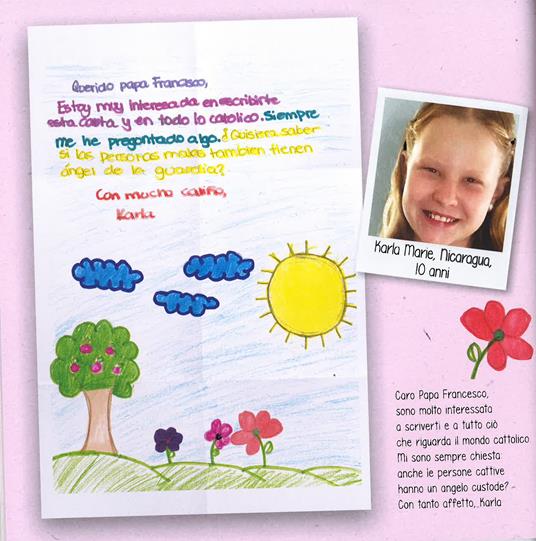 Querido papa Francisco,
Estoy muy interesada en escribirte
esta carta y en todo lo catolico. Siempre
me he pregontado algo. ¿Quisiera saber
si las personas malas tambien tienen
ángel de la guardia?
Con mucho cariño,
Karla
Karla Marie, Nicaragua,
10 anni
Caro Papa Francesco,
sono molto interessata
a scriverti e a tutto ciò
che riguarda il mondo cattolico.
Mi sono sempre chiesta:
anche le persone cattive
hanno un angelo custode?
Con tanto affetto, Karla